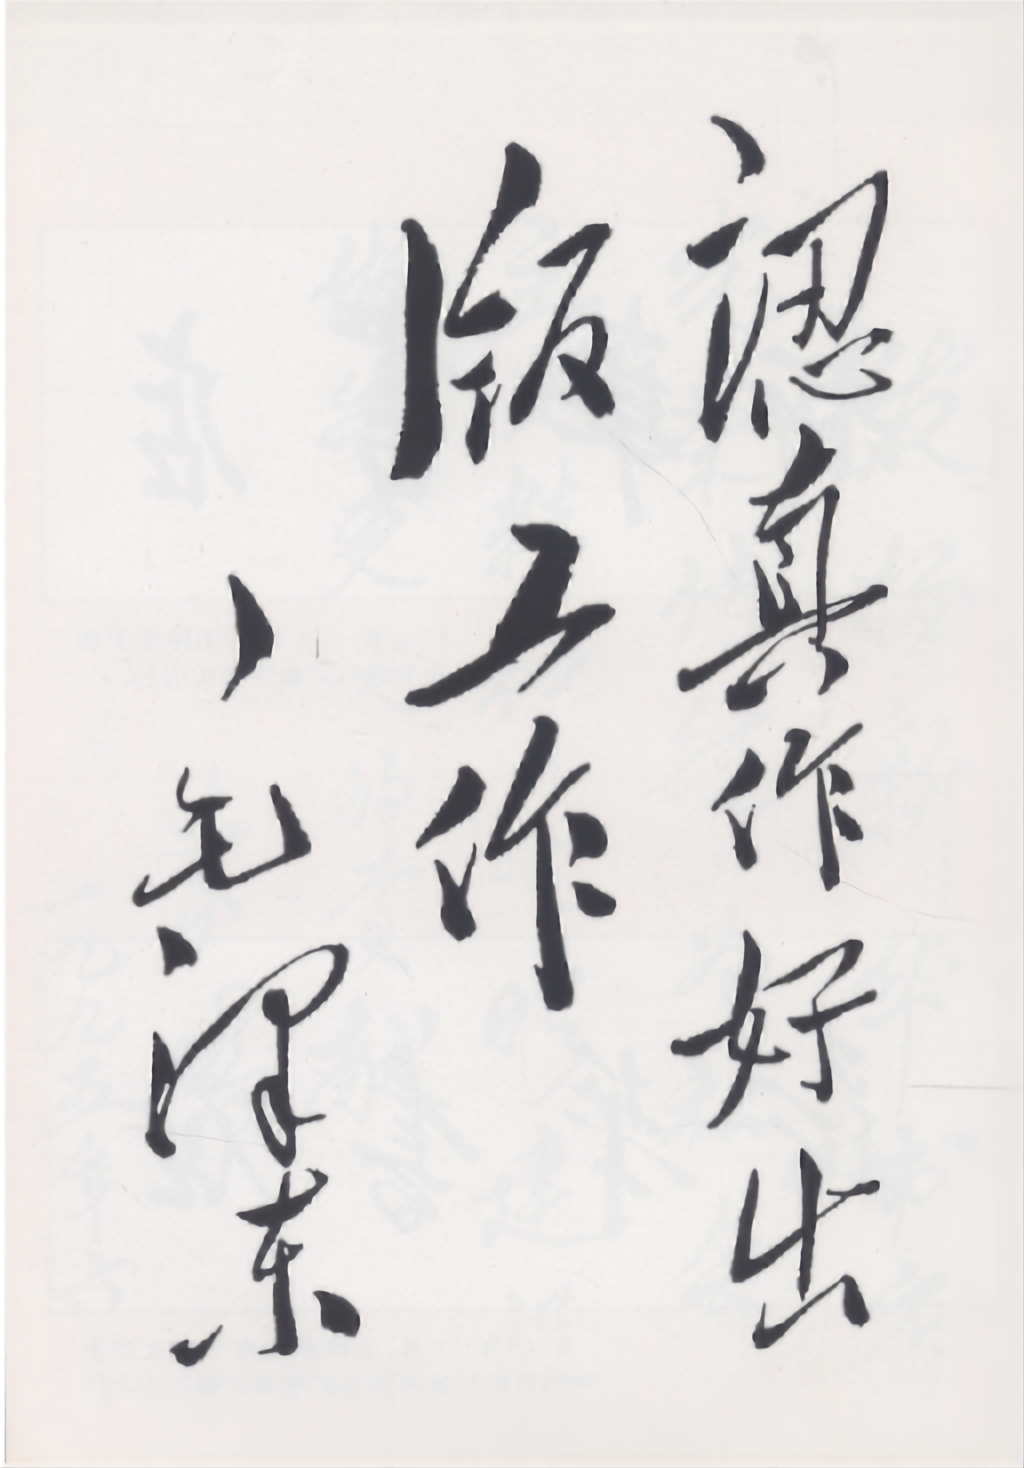 認真作好出
版工作
毛泽东